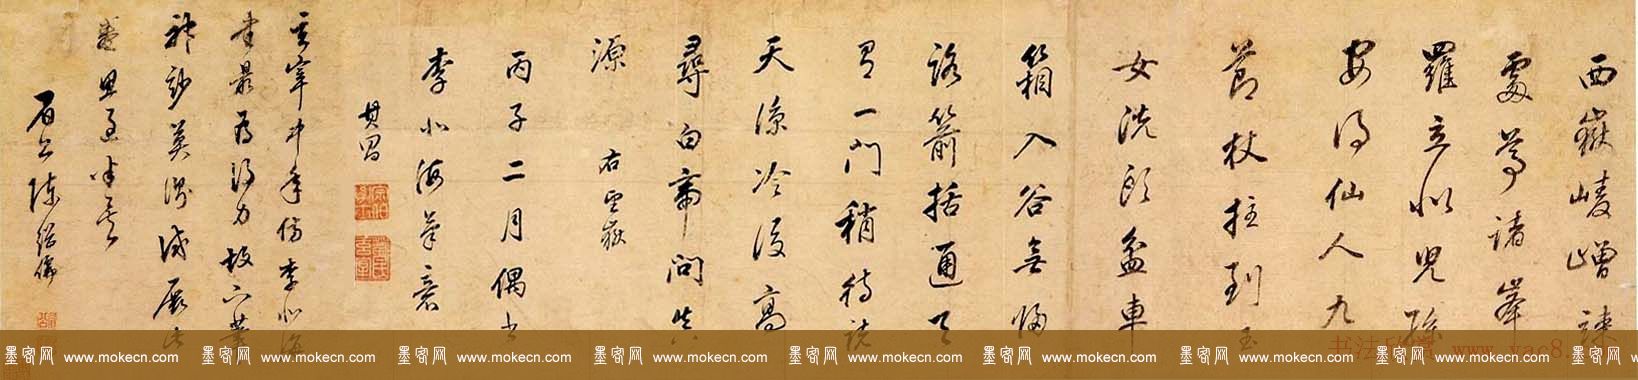 西嶽崚嶒竦
處尊諸峯
羅立似兒孫
安得仙人九
節杖拄到玉
女洗頭盆車
箱入谷無歸
路箭括通天
有一門稍待秋
天涼冷後高
尋白帝問真
源 右望嶽
丙子二月偶書
李北海筆意
其昌
玄宰中年仿李北海
書最為得力故下筆
神妙
眉公陳繼儒
书法欣赏 www.yac8.
墨客网 www.mokecn.com 墨客网 www.mokecn.com 墨客网 www.mokecn.com 墨客网 www.mokecn.com 墨客网 www.mokecn.com 墨客网 www.mokecn.com 墨客网 www.mokecn.com 墨客网 www.mokecn.com 墨客网 w